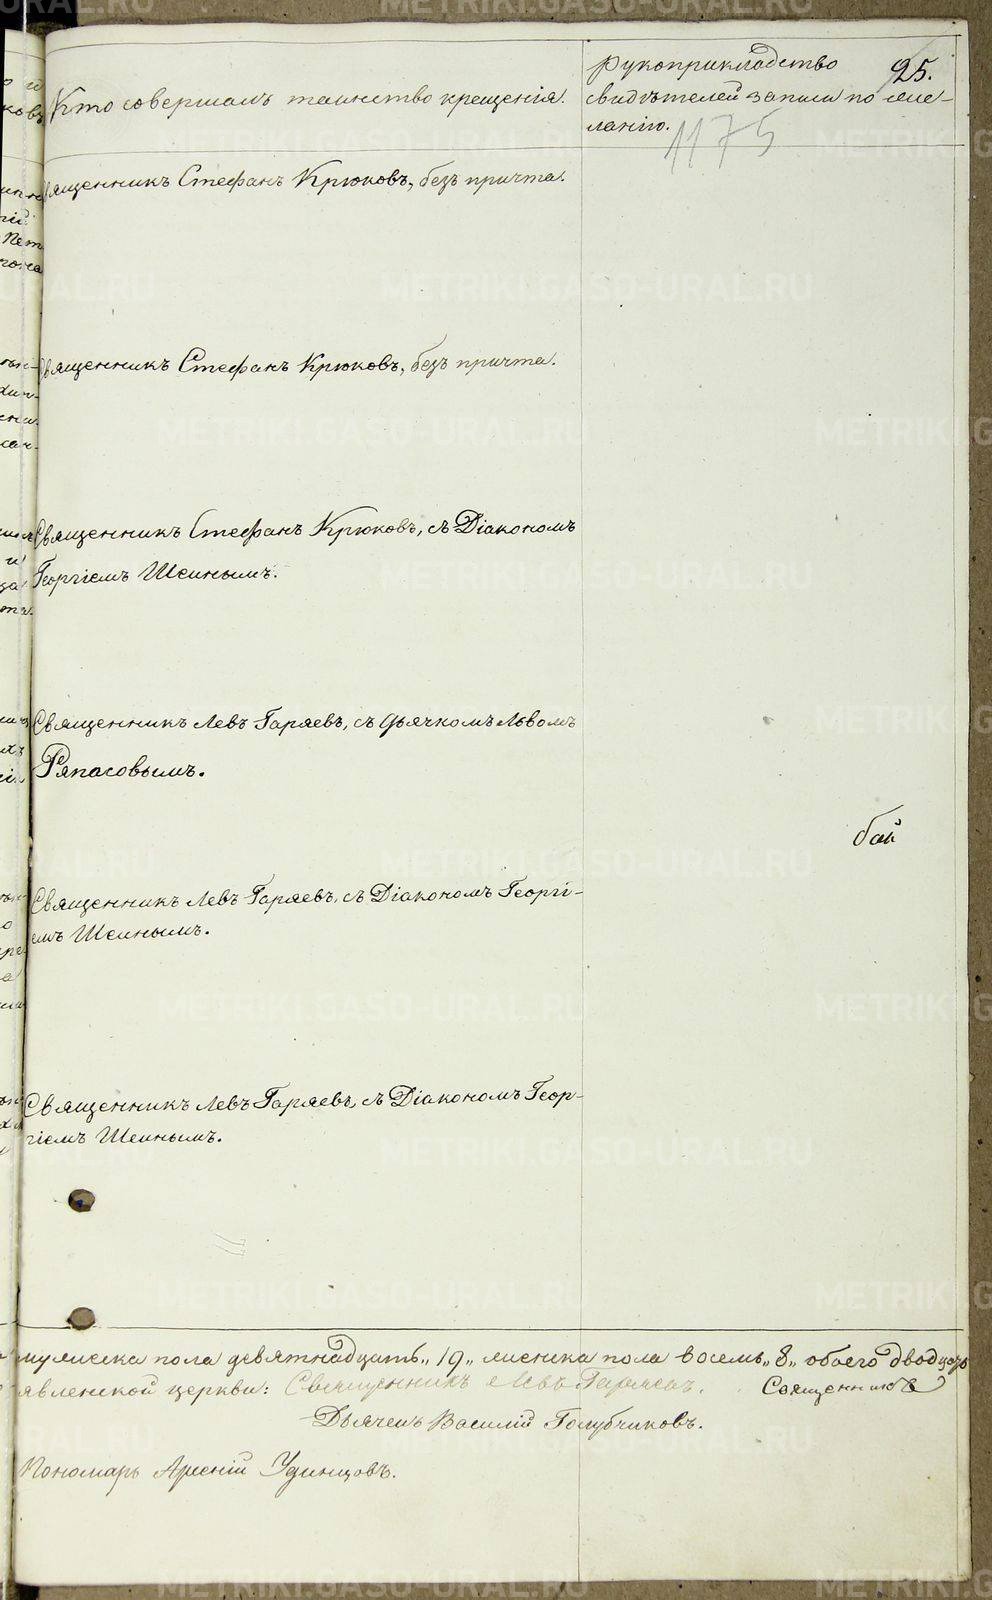 Кто совершалъ таинство крещенія.
Рукоприкладство
свидѣтелей записи по же-
ланію.
25.
1175
Священникъ Стефанъ Крюковъ, безъ причта.
Священникъ Стефанъ Крюковъ, безъ причта.
Священникъ Стефанъ Крюковъ, съ Діакономъ
Георгіемъ Шеинымъ.
Священникъ Левъ Гаряевъ, съ дьячкомъ Львомъ
Ряпасовымъ.
бай
Священникъ Левъ Гаряевъ, съ Діакономъ Георгі-
емъ Шеинымъ.
Священникъ Левъ Гаряевъ, съ Діакономъ Геор-
гіемъ Шеинымъ.
мужеска пола девятнадцать „19„ женска пола восемь „8„ обоего двадцать
явленской церкви: Священникъ Левъ Гаряевъ. Священникъ
Дьячекъ Василій Голубчиковъ.
Пономарь Арсеній Удинцовъ.
METRIKI.GASO-URAL.RU